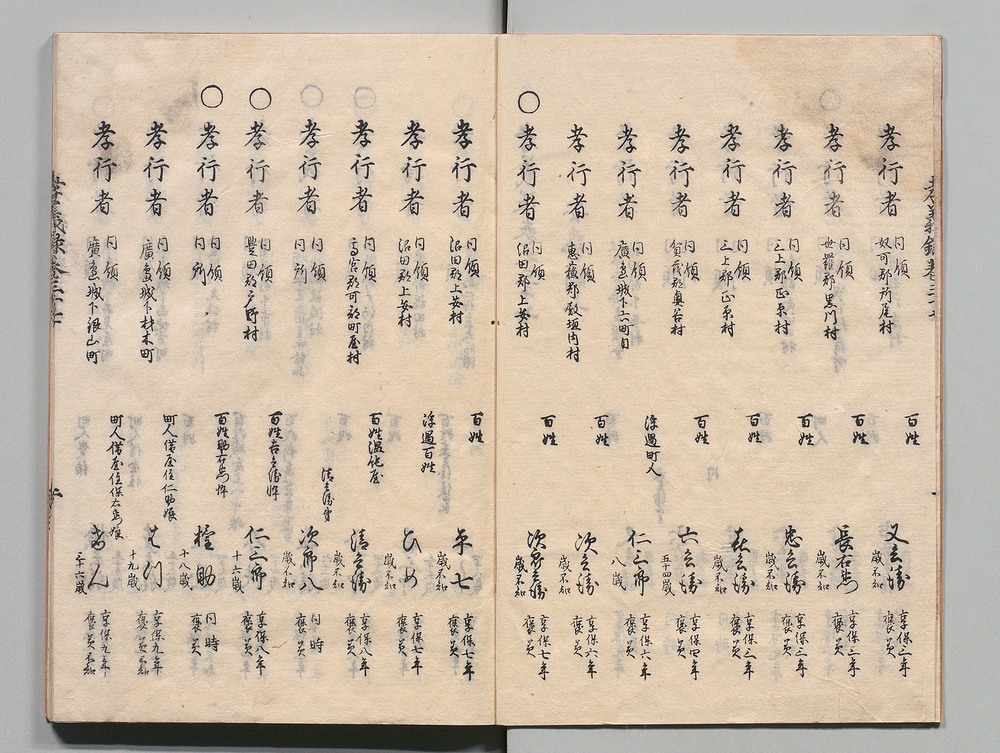 孝行者 同領 奴可郡所尾村 百姓 又兵衛 歳不知 享保三年 褒美
孝行者 同領 世羅郡黒川村 百姓 長右衛門 歳不知 享保三年 褒美
孝行者 同領 三上郡正原村 百姓 忠兵衛 歳不知 享保三年 褒美
孝行者 同領 三上郡正原村 百姓 喜兵衛 歳不知 享保三年 褒美
孝行者 同領 賀茂郡奥谷村 百姓 六兵衛 五十四歳 享保四年 褒美
孝行者 同領 廣島城下六町目 浮過町人 仁三郎 八歳 享保六年 褒美
孝行者 同領 恵蘇郡殿垣内村 百姓 次兵衛 歳不知 享保六年 褒美
〇孝行者 同領 沼田郡上安村 百姓 次郎兵衛 歳不知 享保七年 褒美
孝行者 同領 沼田郡上安村 百姓 平七 歳不知 享保七年 褒美
孝行者 同領 沼田郡上安村 浮過百姓 ひめ 歳不知 享保七年 褒美
孝行者 同領 高宮郡可部町屋村 百姓温飩屋 清兵衛 歳不知 享保八年 褒美
孝行者 同領 同所 清兵衛弟 次郎八 歳不知 同時 褒美
〇孝行者 同領 豊田郡戸野村 百姓吉兵衛忰 仁三郎 十六歳 享保八年 褒美
〇孝行者 同領 同所 百姓助右衛門忰 権助 十八歳 同時 褒美
孝行者 同領 廣島城下材木町 町人借屋住仁助娘 十九歳 享保九年 褒美
孝行者 同領 廣島城下銀山町 町人借屋住 三十六歳 享保九年 褒美